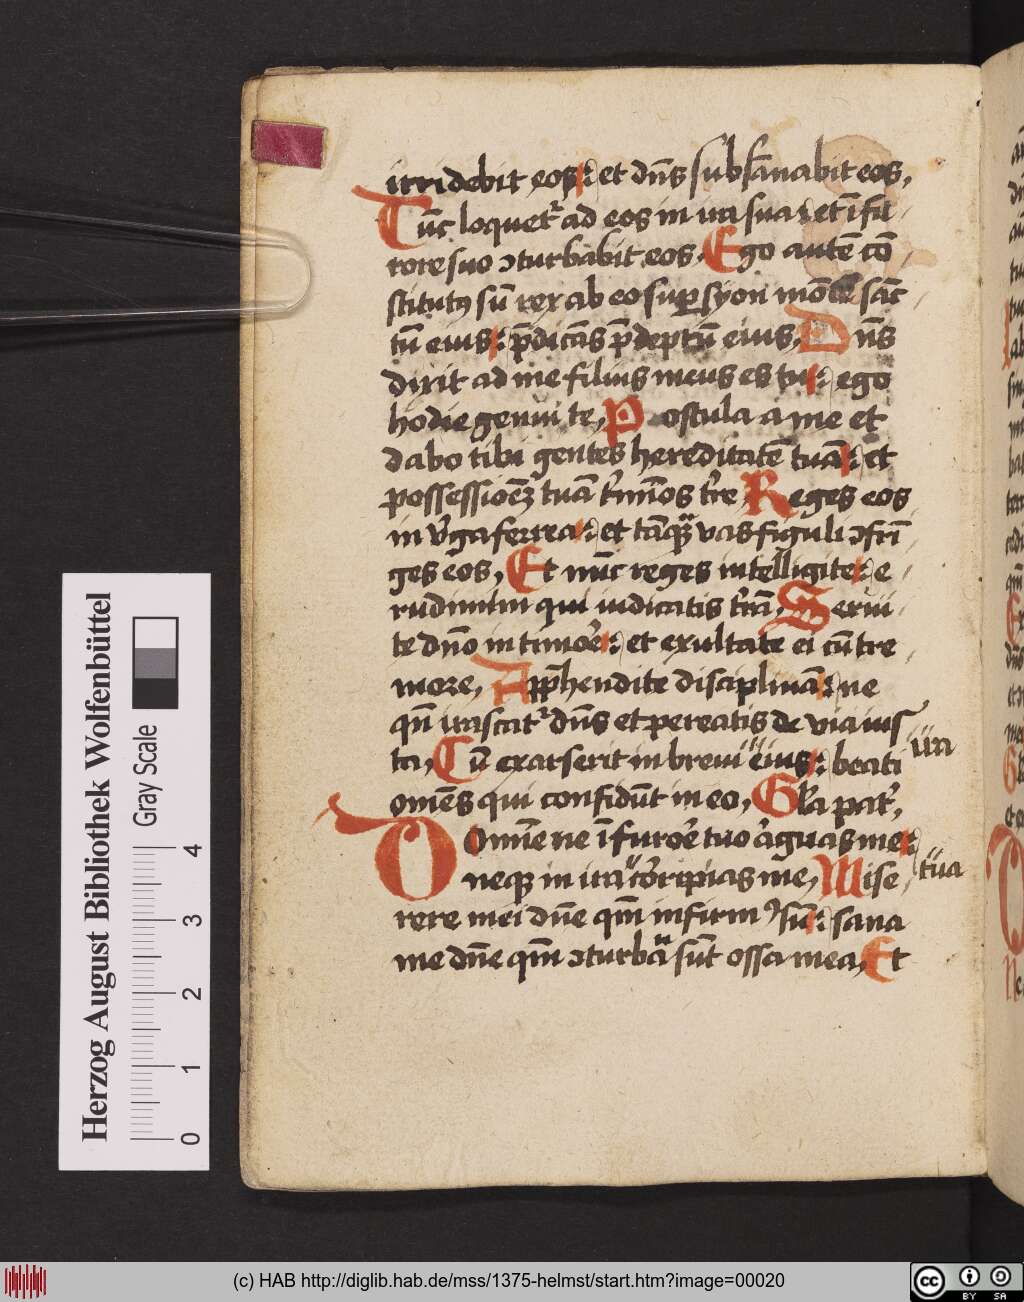 irridebit eos : et dn̄s subsānabit eos,
Tūc loquet᷑ ad eos in ira sua : et ī fu-
rore suo ꝯturbabit eos, Ego autē cō-
stitutꝰ sū rex ab eo suꝑ syon mōtē sāc-
tū eius : p̄dicās p̄ceptū eius, Dn̄s
dixit ad me filius meus es tu : ego
hodie genui te, Postula a me et
dabo tibi gentes hereditatē tuā : et
possessionē tuā t'minos t're Reges eos
in v'ga ferrea : et tāqᷓ vas figuli ꝯfrī-
ges eos, Et nūc reges intelligite : e-
rudimini qui iudicatis t'rā, Serui-
te dn̄o in timor'e : et exultate ei cū tre-
more, Apprehendite disciplinā : ne
qn̄ irascat᷑ dn̄s et pereatis de via ius-
ta, Cū exarserit in breui eius : beati
ira
om̄es qui confidūt in eo, Gl'a pat',
Domine ne ī furor'e tuo ar'guas me :
neqꝫ in ira cor'ripias me, Mise-
tua
rere mei dn̄e qm̄ infirmꝰ sū : sana
me dn̄e qm̄ ꝯturbata sūt ossa mea, Et
Herzog August Bibliothek Wolfenbüttel
Gray Scale
0 1 2 3 4
(c) HAB http://diglib.hab.de/mss/1375-helmst/start.htm?image=00020
cc BY SA